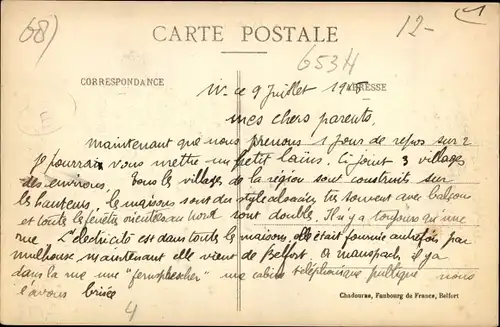 68)
CARTE POSTALE
12-
653H
CORRESPONDANCE
ADRESSE
ce 9 Juillet 19
mes chers parents,
E
maintenant que nous prenons 1 jour de repos sur 2
je pourrai vous mettre un petit Ci joint 3 villages
des environs. Tous les villages de la région sont construits sur
les hauteurs, les maisons sont du style alsacien très souvent avec balcons
et toutes les fenêtres orientées au nord sont double. Il n'y a toujours qu'une
rue. L'électricité est dans toutes les maisons, elle était fournie autrefois par
mulhouse maintenant elle vient de Belfort. à manspach, il y a
dans la rue une "fernsprecher" une cabine téléphonique publique nous
l'avons brisée
4
Chadourne, Faubourg de France, Belfort